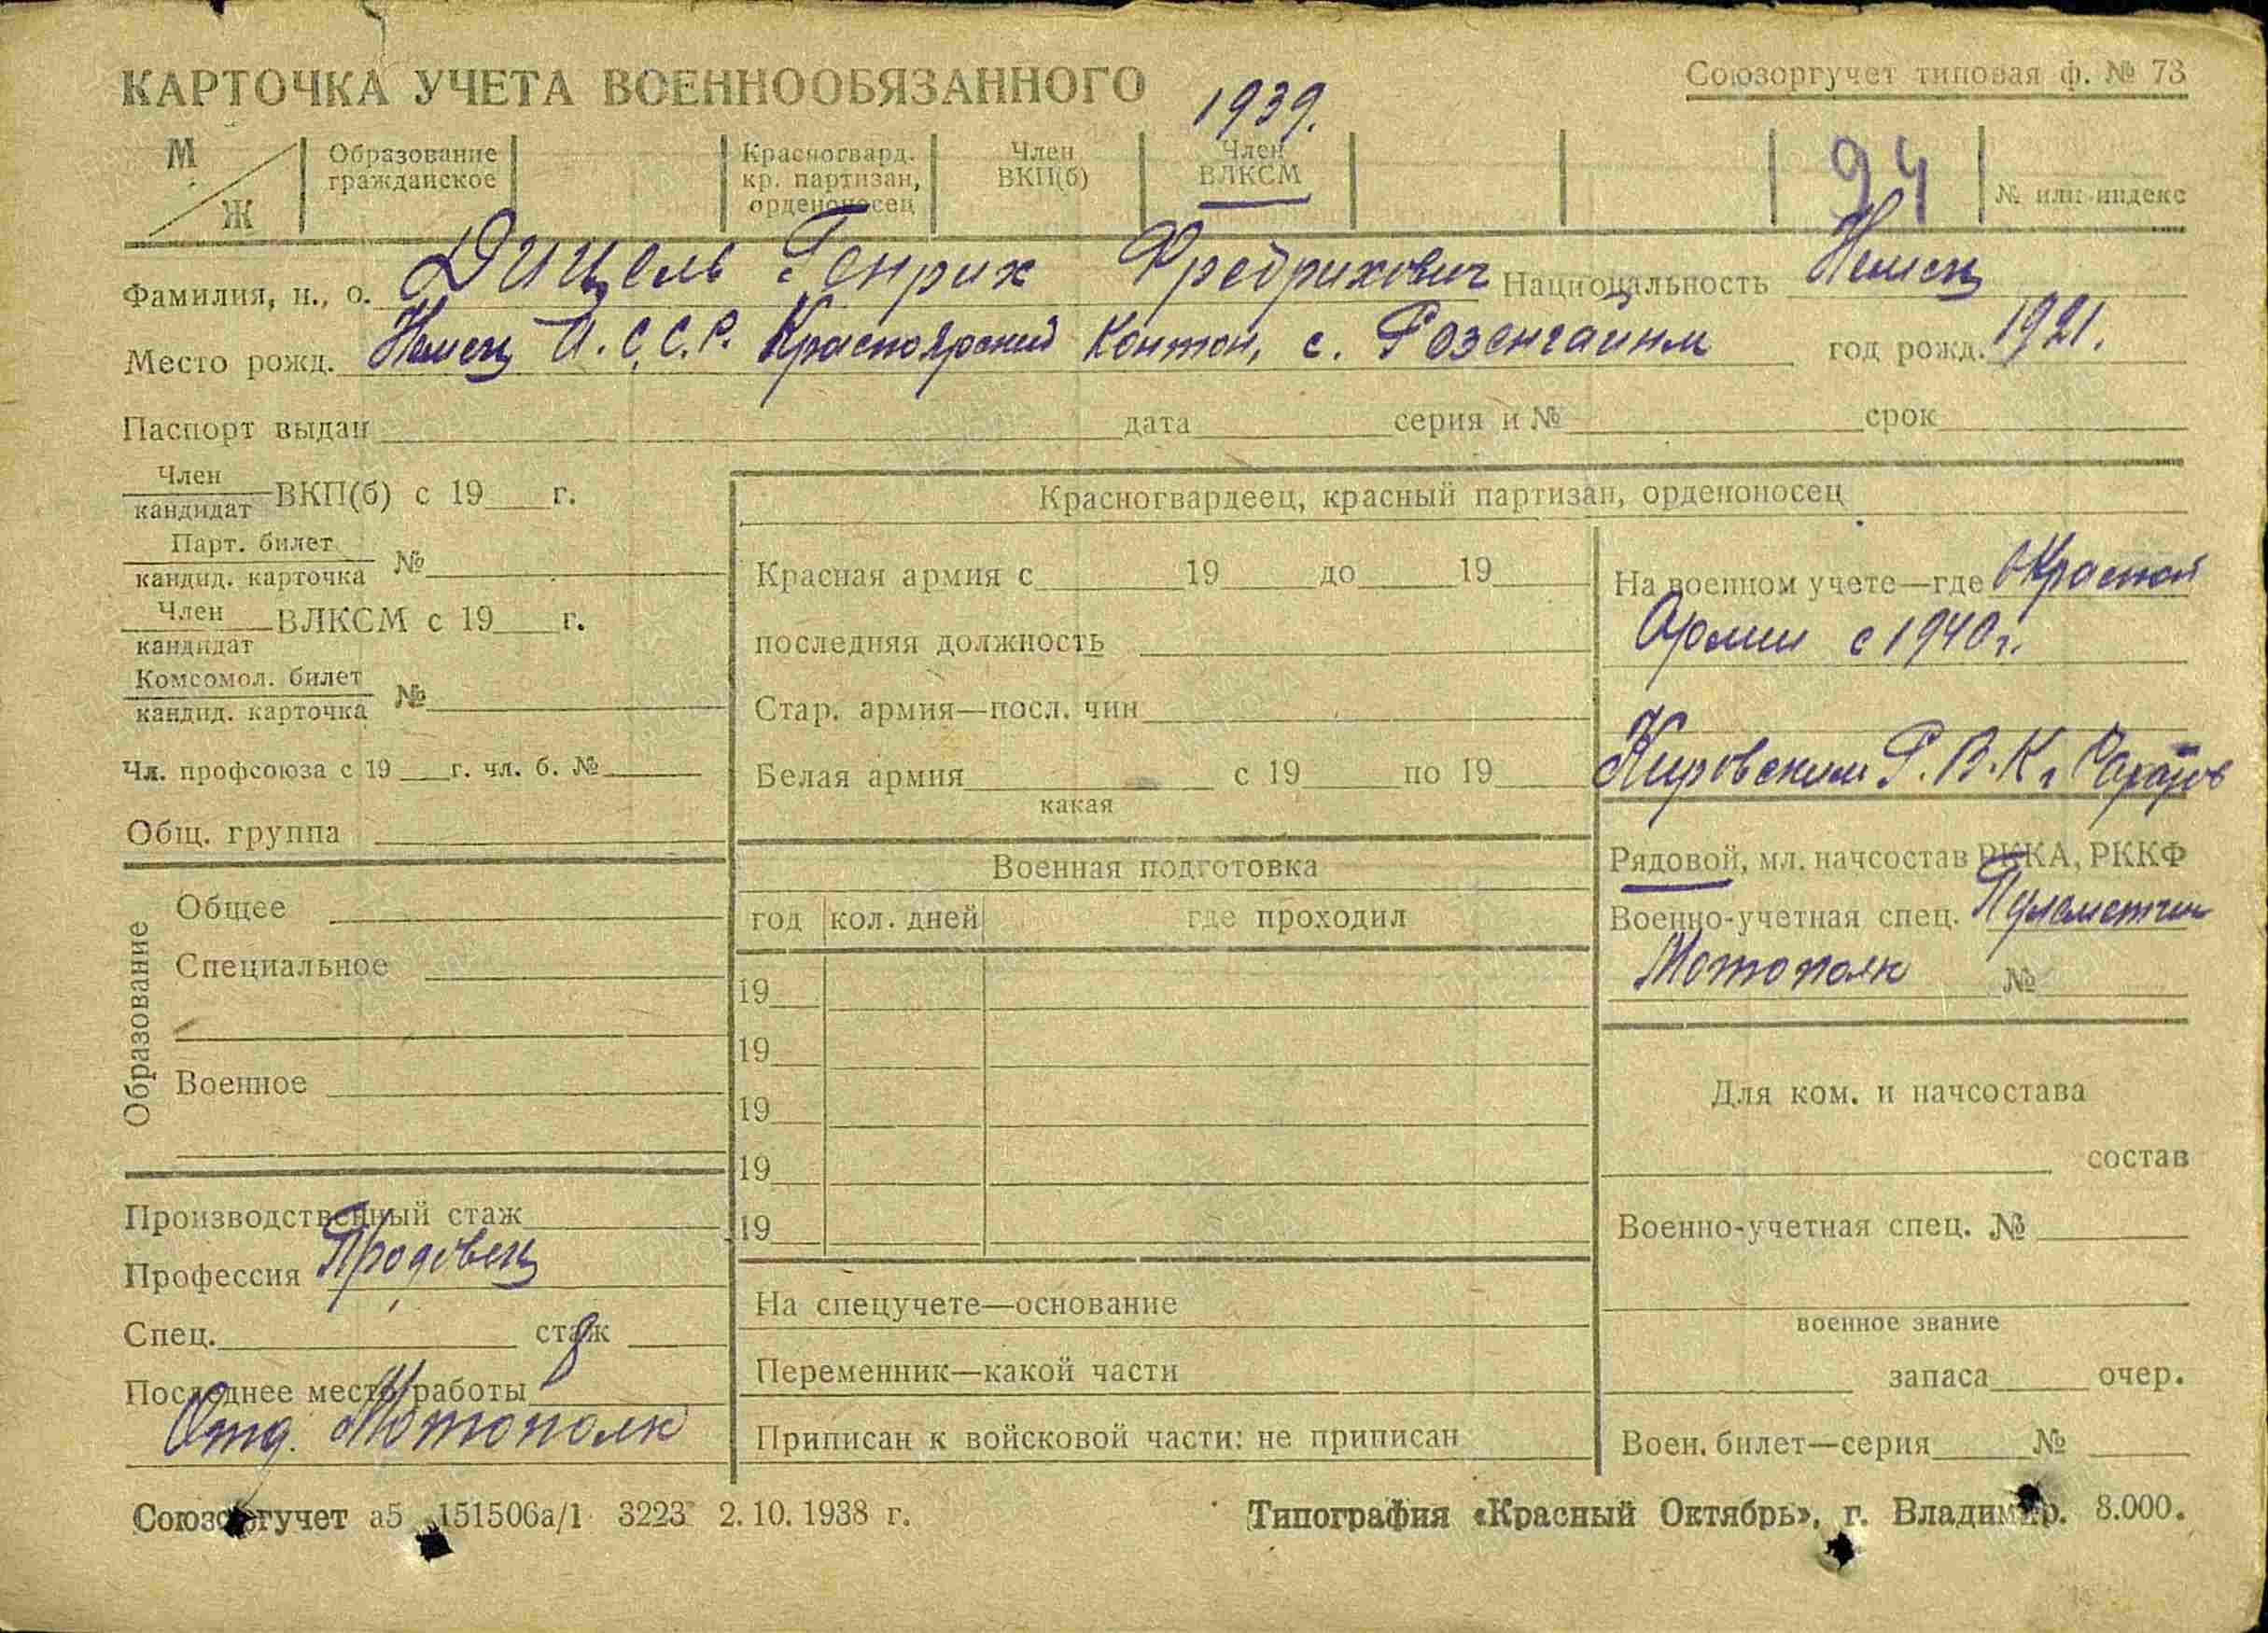 КАРТОЧКА УЧЕТА ВОЕННООБЯЗАННОГО
Союзоргучет типовая ф. № 73
1939.
М
Ж
Образование гражданское
Красногвард. кр. партизан, орденоносец
Член ВКП(б)
Член ВЛКСМ
94
№ или индекс
Фамилия, и., о. Дицель Генрих Фредрихович Национальность Немец
Место рожд. Немец А.С.С.Р. Красноярский Кантон, с. Розенгайм год рожд. 1921.
Паспорт выдан дата серия и № срок
Член
кандидат ВКП(б) с 19 г.
Парт. билет
кандид. карточка №
Член
кандидат ВЛКСМ с 19 г.
Комсомол. билет
кандид. карточка №
Чл. профсоюза с 19 г. чл. б. №
Общ. группа
Образование
Общее
Специальное
Военное
Производственный стаж
Профессия
Спец. стаж 8
Последнее место работы
Отд. Мотополк
Красногвардеец, красный партизан, орденоносец
Красная армия с 19 до 19
последняя должность
Стар. армия—посл. чин
Белая армия с 19 по 19
какая
Военная подготовка
год кол. дней где проходил
19
19
19
19
19
На спецучете—основание
Переменник—какой части
Приписан к войсковой части: не приписан
На военном учете—где в Красной
Армии с 1940 г.
Кировским Р.В.К. г Саратов
Рядовой, мл. начсостав РККА, РККФ
Военно-учетная спец. Пулеметчик
Мотополк №
Для ком. и начсостава
состав
Военно-учетная спец. №
военное звание
запаса очер.
Воен. билет—серия №
Союзоргучет а5 151506а/1 3223 2.10.1938 г.
Типография «Красный Октябрь», г. Владимир. 8.000.